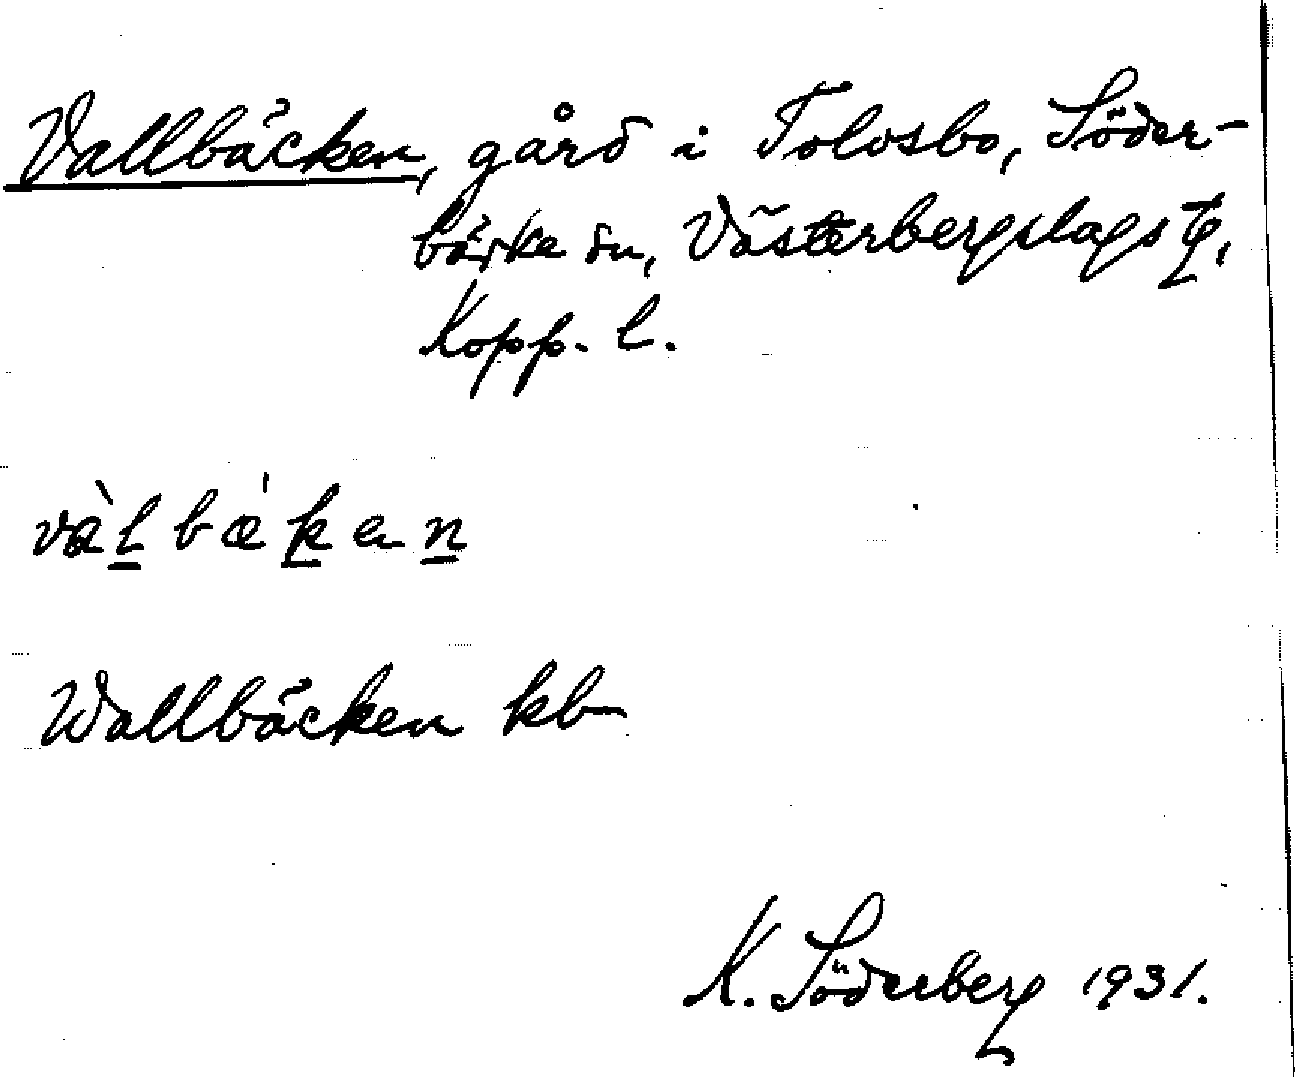 Vallbäcken, gård i Tolvsbo, Söder-
bärke sn, Västerbergslags
Kopp. l.
vàlbækan
Wallbäcken kb
K. Söderberg 1931.